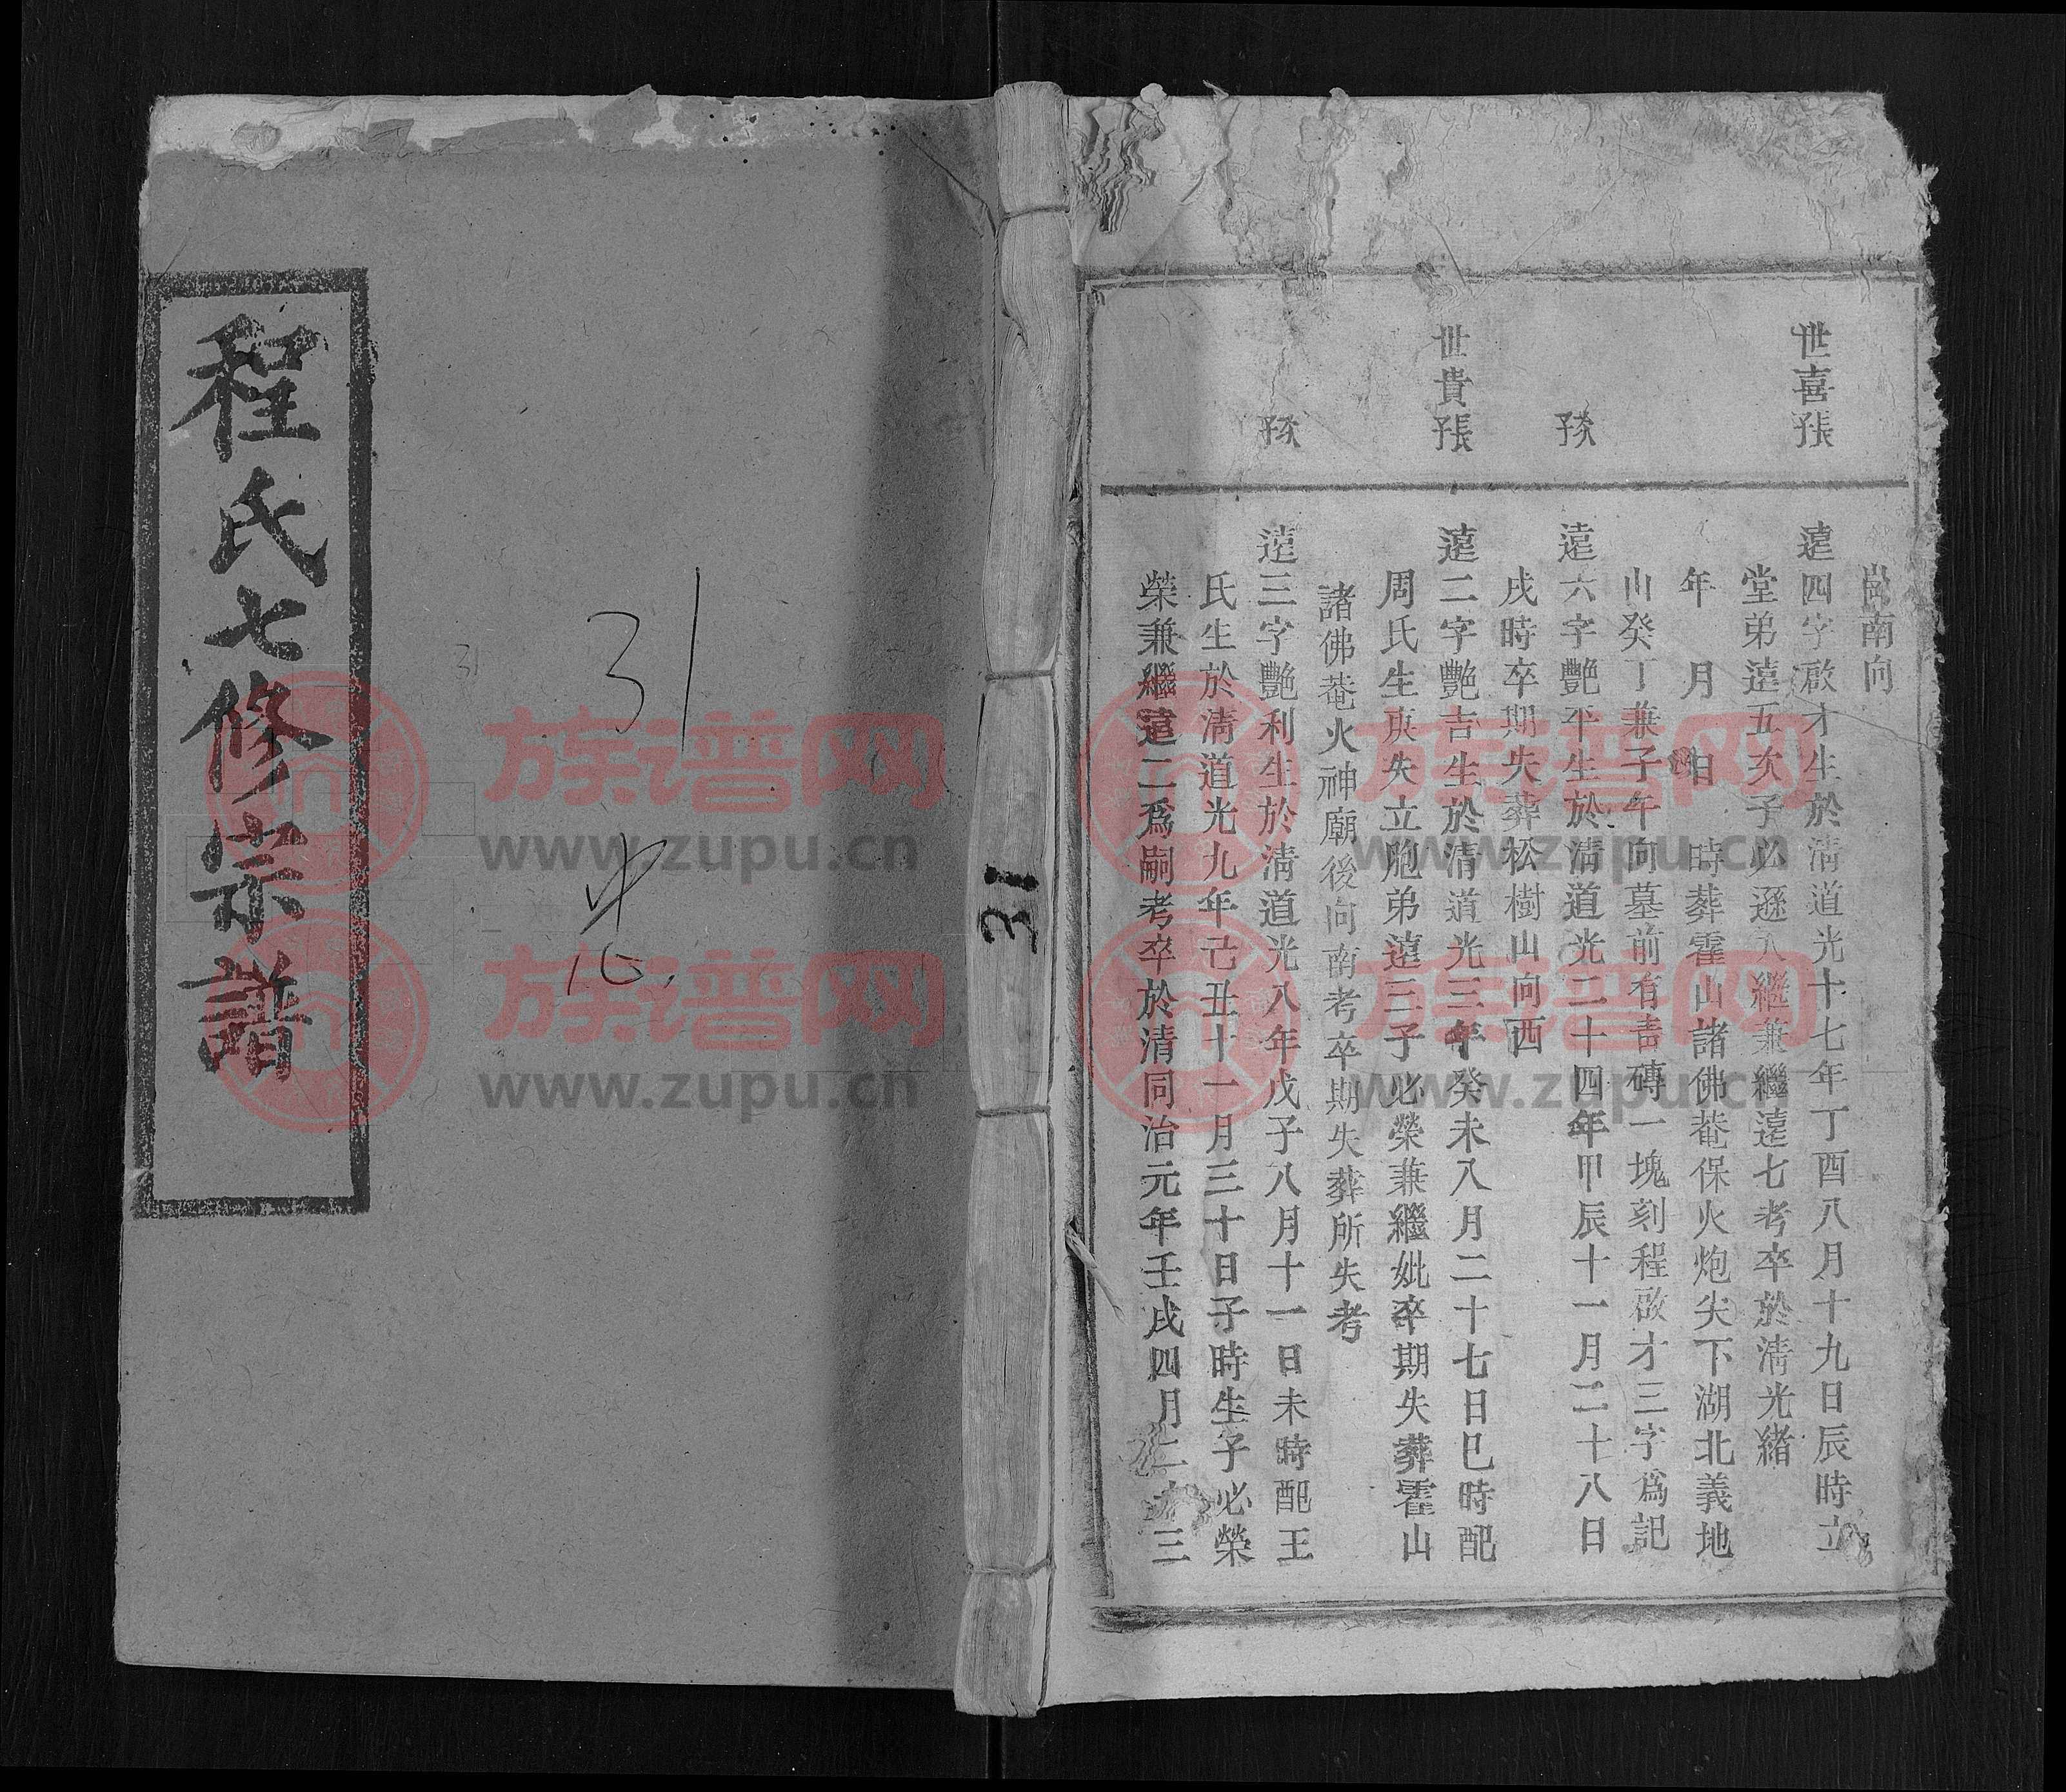 世喜長子
次子
世貴長子
次子
崗南向
遠四字啟才生於淸道光十七年丁酉八月十九日辰時立
堂弟遠五次子必遜入繼兼繼遠七考卒於淸光緒
年 月 日 時葬霍山諸佛菴保火炮尖下湖北義地
山癸丁兼子午向墓前有靑磚一塊刻程啟才三字爲記
遠六字艷平生於淸道光二十四年甲辰十一月二十八日
戌時卒期失葬松樹山向西
遠二字艷吉生於淸道光三年癸未八月二十七日巳時配
周氏生庚失立胞弟遠三子必榮兼繼妣卒期失葬霍山
諸佛菴火神廟後向南考卒期失葬所失考
遠三字艷利生於淸道光八年戊子八月十一日未時配王
氏生於淸道光九年己丑十一月三十日子時生子必榮
榮兼繼遠二爲嗣考卒於清同治元年壬戌四月二十三
程氏七修宗譜
31
31
31
族谱网
www.zupu.cn
族谱网
www.zupu.cn
族谱网
www.zupu.cn
族谱网
www.zupu.cn